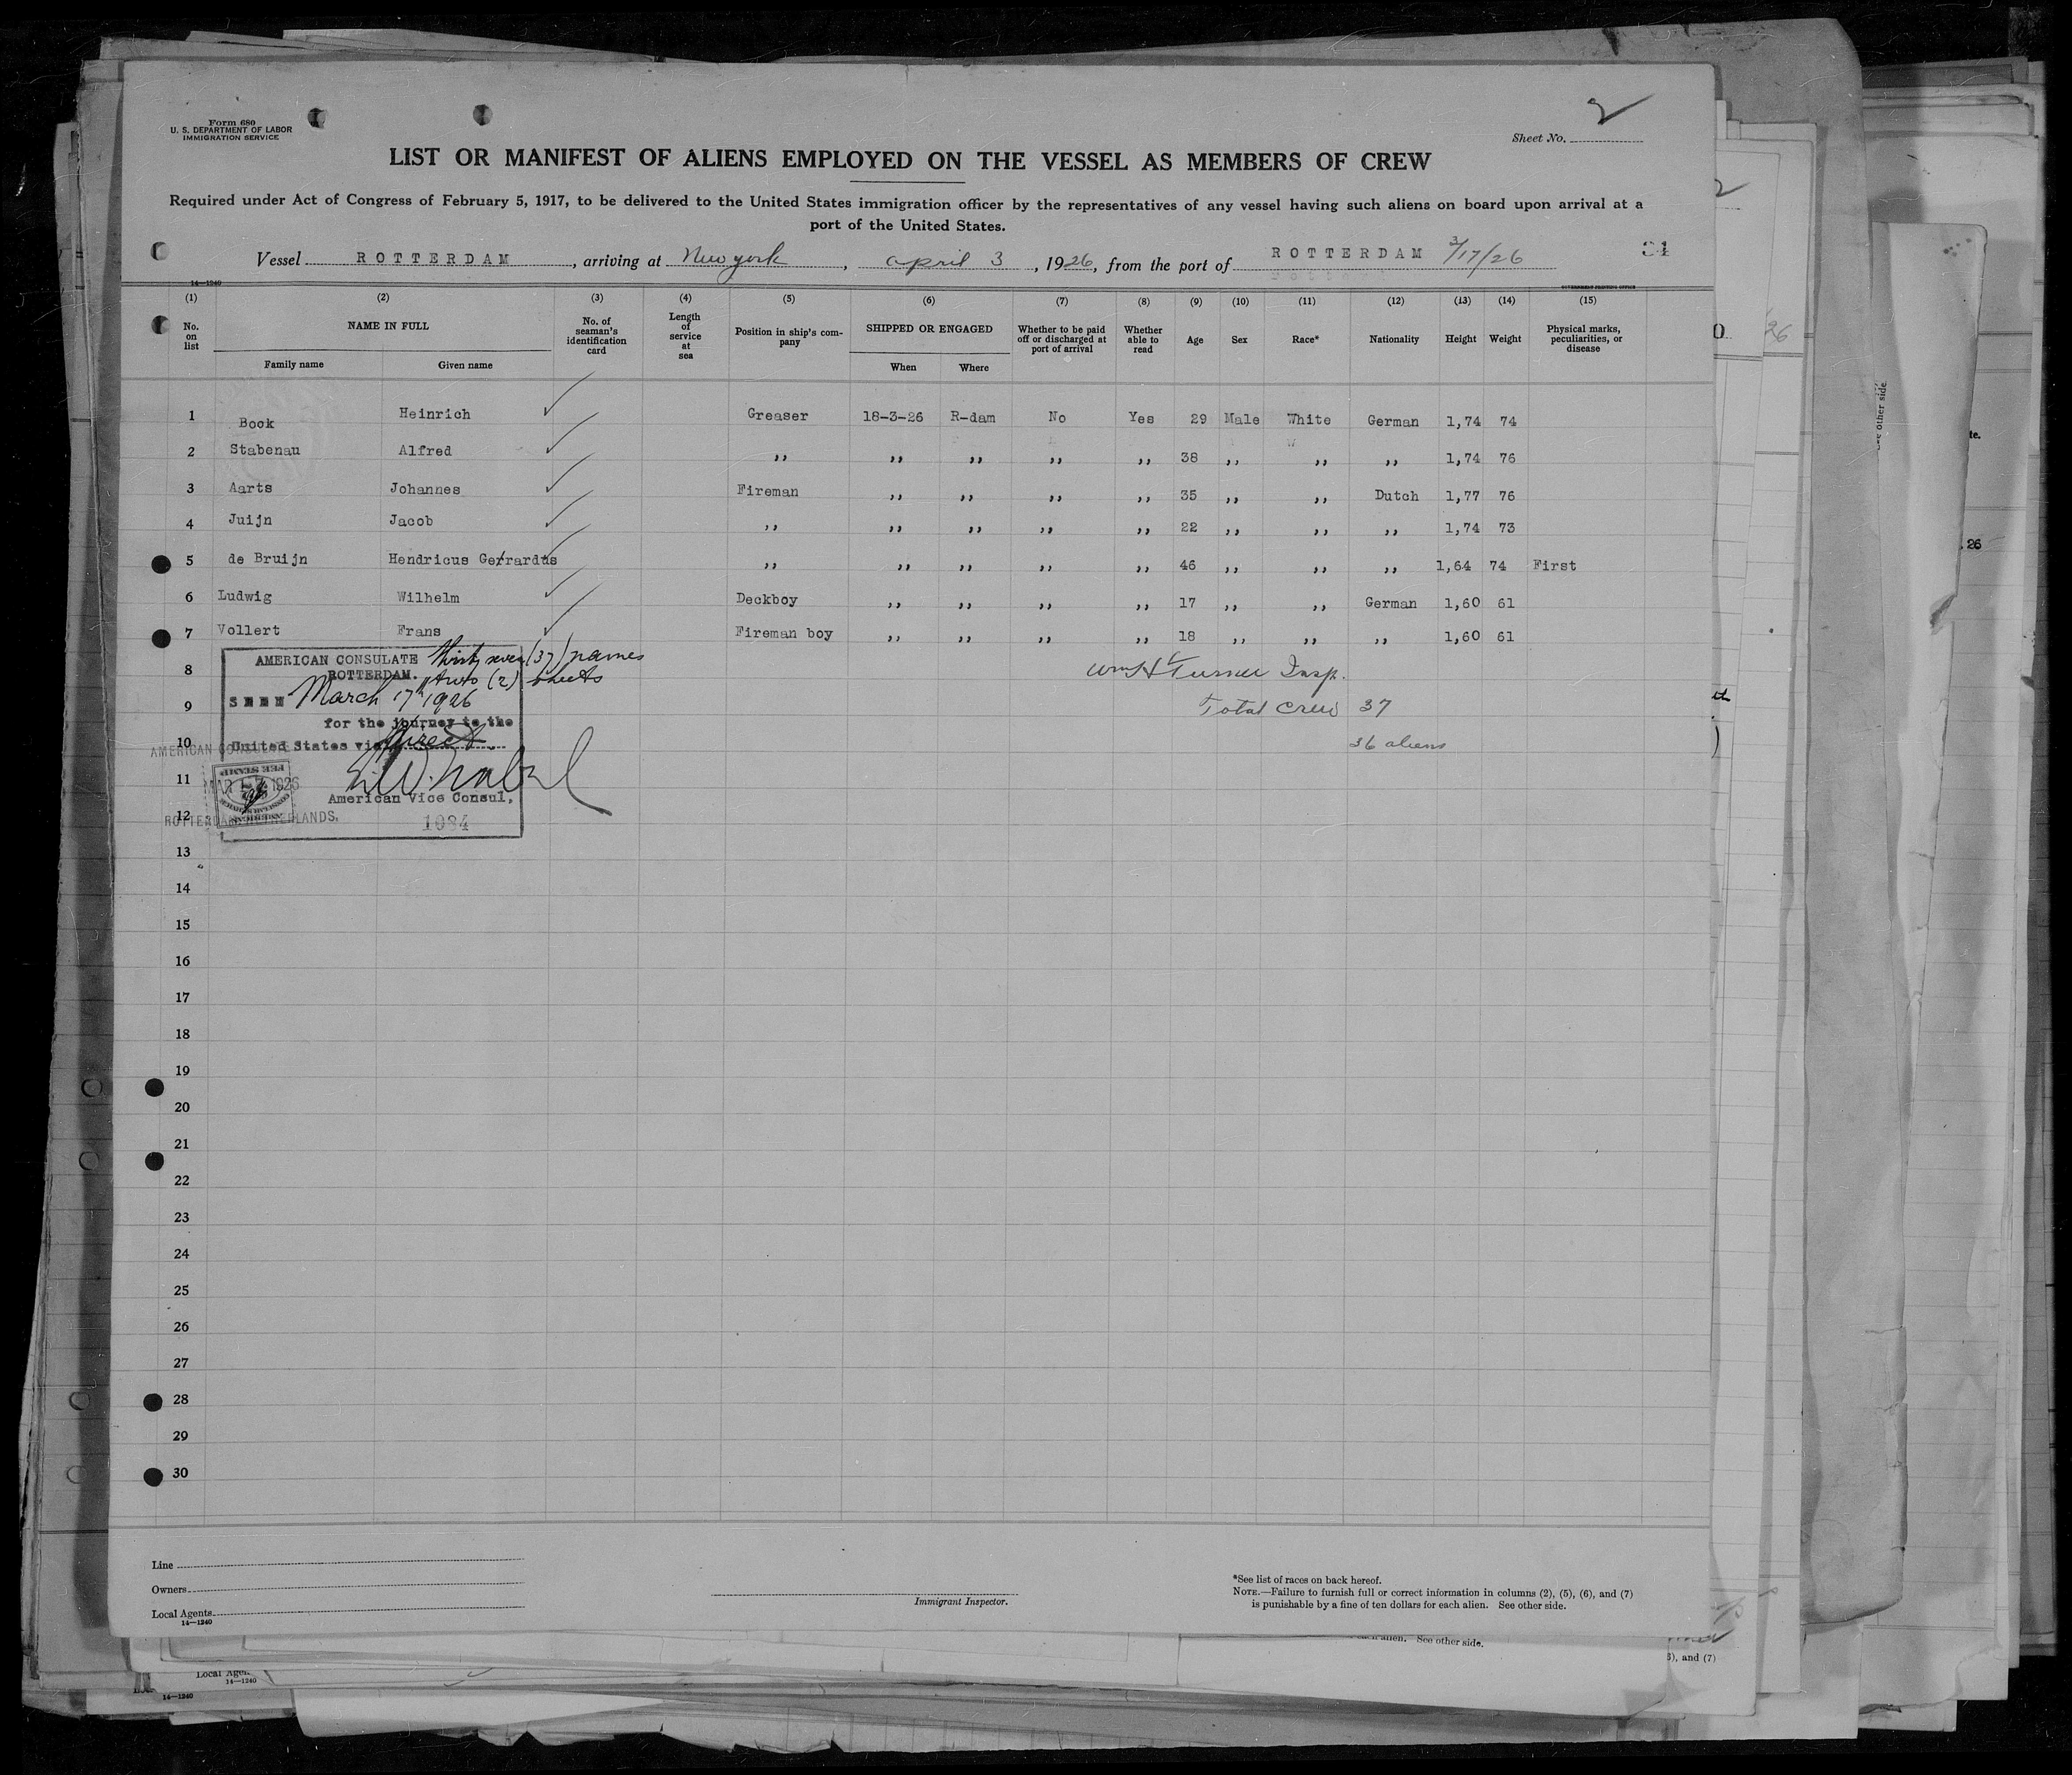 Form 680
U. S. DEPARTMENT OF LABOR
IMMIGRATION SERVICE
2
Sheet No.
LIST OR MANIFEST OF ALIENS EMPLOYED ON THE VESSEL AS MEMBERS OF CREW
Required under Act of Congress of February 5, 1917, to be delivered to the United States immigration officer by the representatives of any vessel having such aliens on board upon arrival at a
port of the United States.
Vessel ROTTERDAM, arriving at New york, april 3, 1926, from the port of ROTTERDAM 3/17/26
34
14—1240
GOVERNMENT PRINTING OFFICE
(1) (2) (3) (4) (5) (6) (7) (8) (9) (10) (11) (12) (13) (14) (15)
No. on list NAME IN FULL Family name Given name No. of seaman's identification card Length of service at sea Position in ship's com- pany SHIPPED OR ENGAGED When Where Whether to be paid off or discharged at port of arrival Whether able to read Age Sex Race* Nationality Height Weight Physical marks, peculiarities, or disease
1 Book Heinrich Greaser 18-3-26 R-dam No Yes 29 Male White German 1,74 74
2 Stabenau Alfred ,, ,, ,, ,, ,, 38 ,, ,, ,, 1,74 76
3 Aarts Johannes Fireman ,, ,, ,, ,, 35 ,, ,, Dutch 1,77 76
4 Juijn Jacob ,, ,, ,, ,, ,, 22 ,, ,, ,, 1,74 73
5 de Bruijn Hendricus Gerrardus ,, ,, ,, ,, ,, 46 ,, ,, ,, 1,64 74 First
6 Ludwig Wilhelm Deckboy ,, ,, ,, ,, 17 ,, ,, German 1,60 61
7 Vollert Frans Fireman boy ,, ,, ,, ,, 18 ,, ,, ,, 1,60 61
AMERICAN CONSULATE thirty seven (37) names
ROTTERDAM. two (2) sheets
SEEN March 17th 1926
for the journey to the
United States via direct
American Vice Consul,
1084
AMERICAN CONSULATE
MAR 17 1926
ROTTERDAM, NETHERLANDS.
FEE STAMP
8 Wm H Turner Insp.
9 Total Crew 37
10 36 aliens
11
12
13
14
15
16
17
18
19
20
21
22
23
24
25
26
27
28
29
30
Line
Owners
Local Agents
14—1240
Immigrant Inspector.
*See list of races on back hereof.
NOTE.—Failure to furnish full or correct information in columns (2), (5), (6), and (7)
is punishable by a fine of ten dollars for each alien. See other side.
See other side.
and (7)
14—1240
14—1240